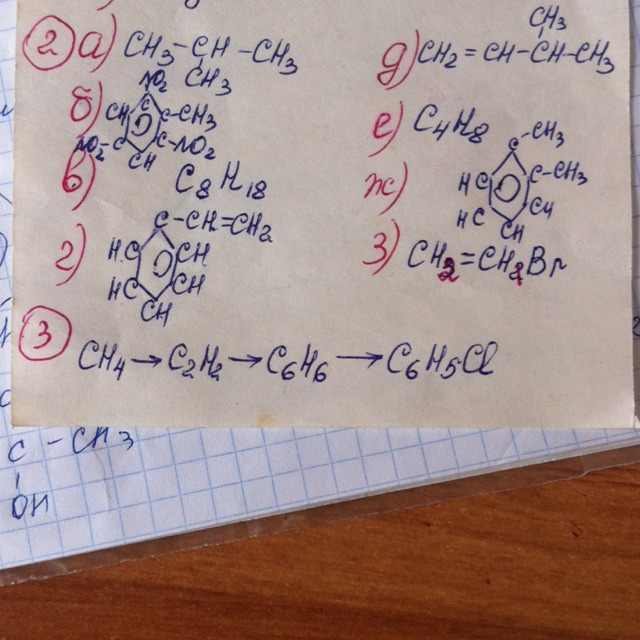 ② а) CH3-CH-CH3
CH3
б) NO2
C
CH C-CH3
NO2-C C-NO2
CH
в) C8H18
г) C-CH=CH2
HC CH
HC CH
CH
CH3
д) CH2=CH-CH-CH3
е) C4H8
ж) C-CH3
HC C-CH3
HC CH
CH
з) CH2=CH2Br
③
CH4→C2H2→C6H6→C6H5Cl
C-CH3
OH